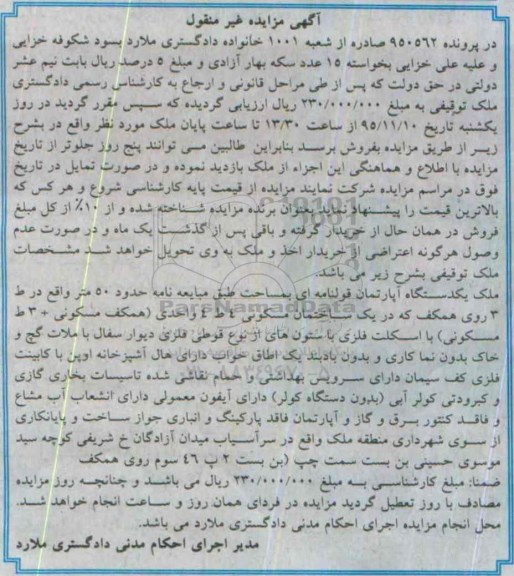 آگهی مزایده غیر منقول
در پرونده ۹۵۰۵۶۲ صادره از شعبه ۱۰۰۱ خانواده دادگستری ملارد بسود شکوفه خزایی
و علیه علی خزایی بخواسته ۱۵ عدد سکه بهار آزادی و مبلغ ۵ درصد ریال بابت نیم عشر
دولتی در حق دولت که پس از طی مراحل قانونی و ارجاع به کارشناس رسمی دادگستری
ملک توقیفی به مبلغ ۲۳۰/۰۰۰/۰۰۰ ریال ارزیابی گردیده که سپس مقرر گردید در روز
یکشنبه تاریخ ۹۵/۱۱/۱۰ از ساعت ۱۳/۳۰ تا ساعت پایان ملک مورد نظر واقع در بشرح
زیر از طریق مزایده بفروش برسد بنابراین طالبین می توانند پنج روز جلوتر از تاریخ
مزایده با اطلاع و هماهنگی این اجراء از ملک بازدید نموده و در صورت تمایل در تاریخ
فوق در مراسم مزایده شرکت نمایند مزایده از قیمت پایه کارشناسی شروع و هر کس که
بالاترین قیمت را پیشنهاد نماید بعنوان برنده مزایده شناخته شده و از ۱۰٪ از کل مبلغ
فروش در همان حال از خریدار گرفته و باقی پس از گذشت یک ماه و در صورت عدم
وصول هرگونه اعتراضی از خریدار اخذ و ملک به وی تحویل خواهد شد مشخصات
ملک توقیفی بشرح زیر می باشد
ملک یکدستگاه آپارتمان قولنامه ای بمساحت طبق مبایعه نامه حدود ۵۰ متر واقع در ط
۳ روی همکف که در یک ساختمان مسکونی ۴ ط و ۴ واحدی (همکف مسکونی + ۳ ط
مسکونی) با اسکلت فلزی با ستون های از نوع قوطی فلزی دیوار سفال با ملات گچ و
خاک بدون نما کاری و بدون بادبند یک اطاق خواب دارای هال آشپزخانه اوپن با کابینت
فلزی کف سیمان دارای سرویس بهداشتی و حمام نقاشی شده تاسیسات بخاری گازی
و کبرودتی کولر آبی (بدون دستگاه کولر) دارای آیفون معمولی دارای انشعاب آب مشاع
و فاقد کنتور برق و گاز و آپارتمان فاقد پارکینگ و انباری جواز ساخت و پایانکاری
از سوی شهرداری منطقه ملک واقع در سرآسیاب میدان آزادگان خ شریفی کوچه سید
موسوی حسینی بن بست سمت چپ (بن بست ۲ پ ۴۶ سوم روی همکف
ضمنا: مبلغ کارشناسی به مبلغ ۲۳۰/۰۰۰/۰۰۰ ریال می باشد و چنانچه روز مزایده
مصادف با روز تعطیل گردید مزایده در فردای همان روز و ساعت انجام خواهد شد.
محل انجام مزایده اجرای احکام مدنی دادگستری ملارد می باشد.
مدیر اجرای احکام مدنی دادگستری ملارد